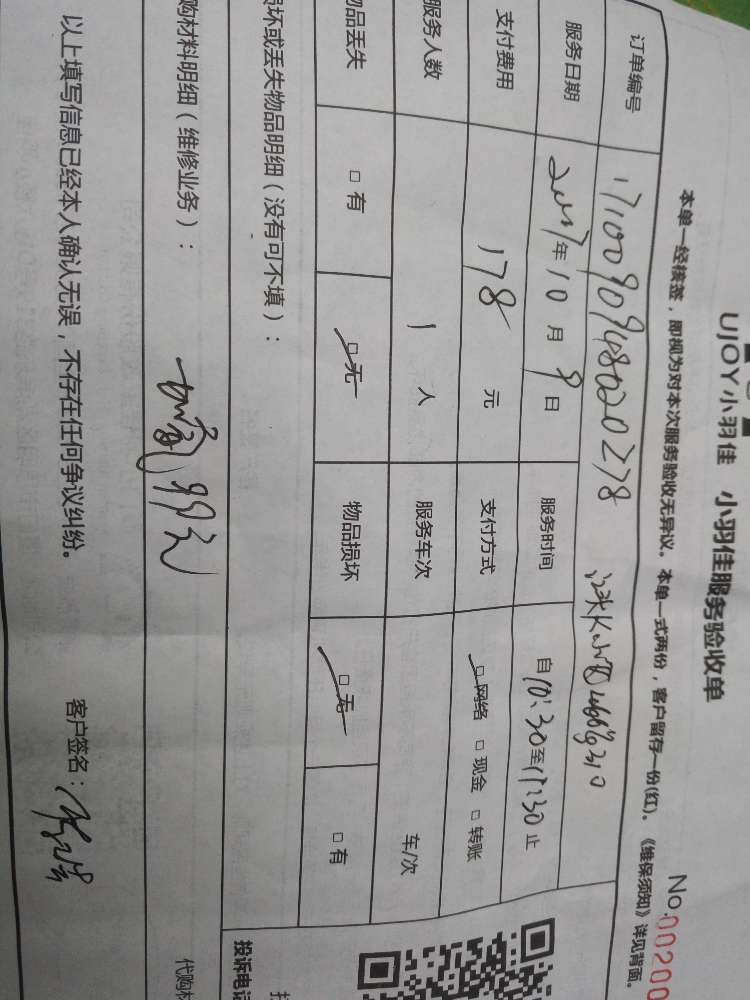 UJOY小羽佳 小羽佳服务验收单
No.00200
本单一经接签，即视为对本次服务验收无异议。本单一式两份，客户留存一份(红)。《维保须知》详见背面。
订单编号 1710090948020278
服务日期 2017年10月9日 服务时间 自10:30至11:30止
支付费用 178元 支付方式 □网络 □现金 □转账
服务人数 1人 服务车次 车/次
物品丢失 □有 □无 物品损坏 □无 □有
损坏或丢失物品明细（没有可不填）：
购材料明细（维修业务）：
代购材
以上填写信息已经本人确认无误，不存在任何争议纠纷。 客户签名：
投诉电话